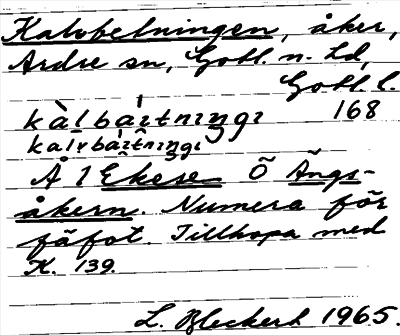 Kalvbetningen, åker,
Ardre sn, Gotl. n. hd,
Gotl. l.
kàlbàitnıŋgı 168
kalvbàitnıŋgı
Å 1 Ekese Ö Ängs-
åkern. Numera för
fäfot. Tillhopa med
K. 139.
L. Bleckert 1965.